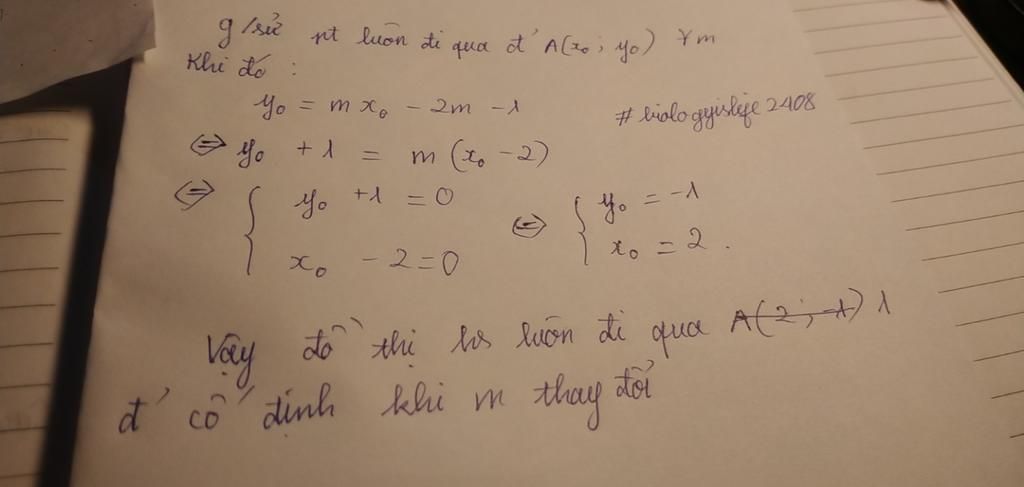 g/sử pt luôn đi qua đ' A(x₀; y₀) ∀m
Khi đó :
y₀ = mx₀ - 2m - 1
#biologyislife2408
⇔ y₀ + 1 = m(x₀ - 2)
⇔ { y₀ + 1 = 0 ⇔ { y₀ = -1
x₀ - 2 = 0 x₀ = 2.
Vậy đồ thị hs luôn đi qua A(2; -1) 1
đ' cố định khi m thay đổi